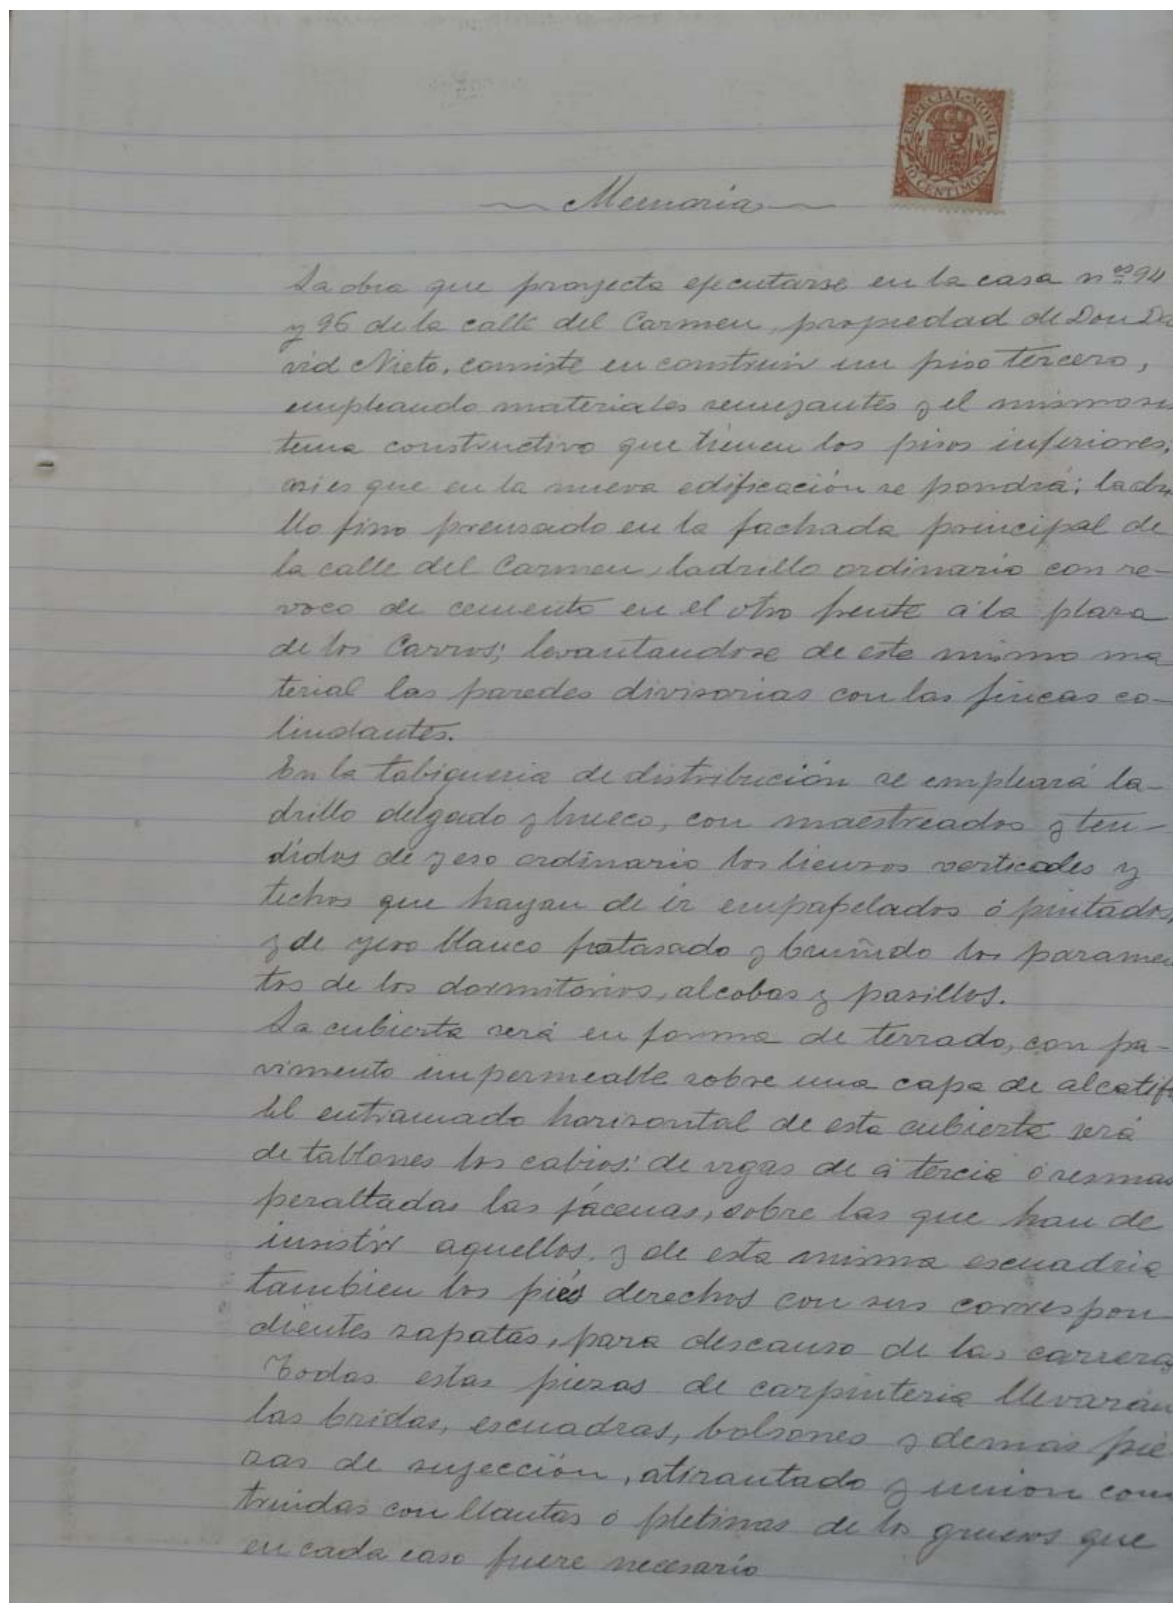 ESPECIAL MOVIL
10 CENTIMOS
Memoria
La obra que proyecta ejecutarse en la casa nos 94
y 96 de la calle del Carmen, propiedad de Don Da
vid Nieto, consiste en construir un piso tercero,
empleando materiales semejantes y el mismo sis
tema constructivo que tienen los pisos inferiores,
asi es que en la nueva edificación se pondrá; ladri
llo fino prensado en la fachada principal de
la calle del Carmen, ladrillo ordinario con re-
voco de cemento en el otro frente á la plaza
de los Carros; levantandose de este mismo ma
terial las paredes divisorias con las fincas co-
lindantes.
En la tabiqueria de distribución se empleará la-
drillo delgado y hueco, con maestreados y ten-
didos de yeso ordinario los lienzos verticales y
techos que hayan de ir empapelados ó pintados,
y de yeso blanco fratasado y bruñido los paramen
tos de los dormitorios, alcobas y pasillos.
La cubierta será en forma de terrado, con pa-
vimento impermeable sobre una capa de alcatifa
El entramado horizontal de esta cubierta será
de tablones los cabios; de vigas de á tercia ó resmas
peraltadas las jácenas, sobre las que han de
insistir aquellos, y de esta misma escuadria
tambien los piés derechos con sus correspon
dientes zapatas, para descanso de las carreras
Todas estas piezas de carpinteria llevarán
las bridas, escuadras, bolsones y demás pie
zas de sujección, atirantado y union cons
truidas con llantas o pletinas de los gruesos que
en cada caso fuere necesario